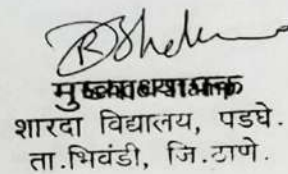 मुख्याध्यापक
शारदा विद्यालय, पडघे.
ता.भिवंडी, जि.ठाणे.